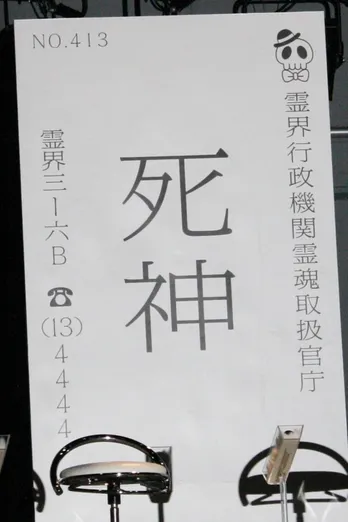 NO.413
霊界行政機関霊魂取扱官庁
死神
霊界三ー六B
☎(13)4444